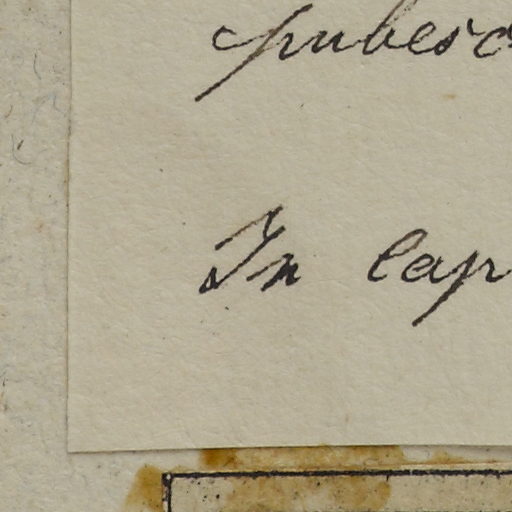 pubesc
In cap